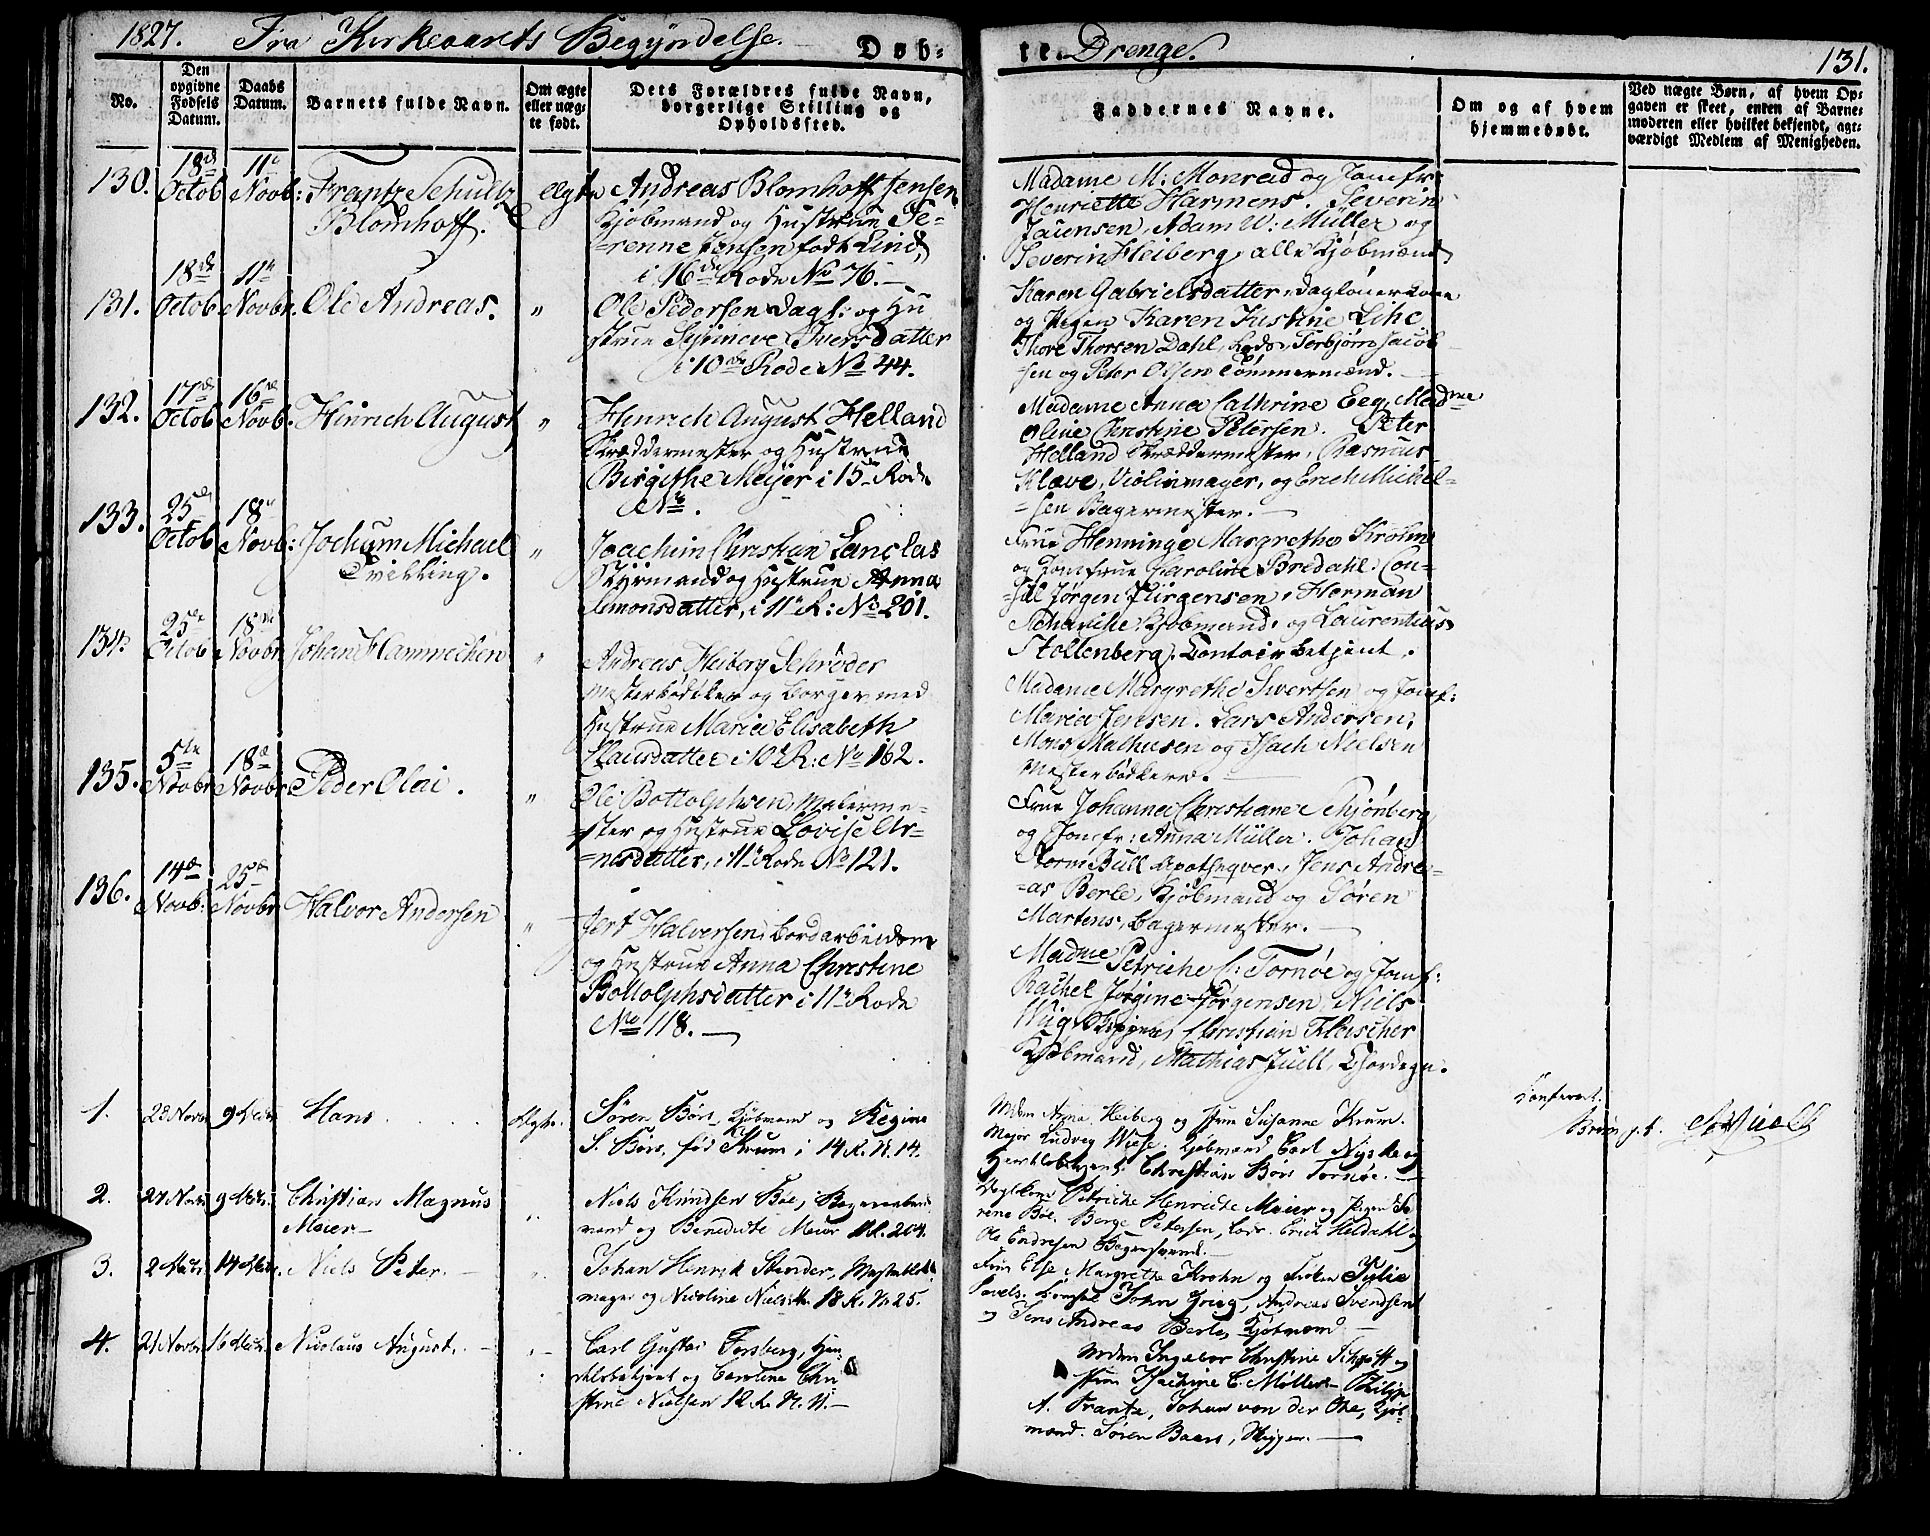 1827. Fra Kirkeaarets Begyndelse. Døb-
te Drenge. 131.
No.
Den opgivne Fødsels Datum.
Daabs Datum.
Barnets fulde Navn.
Om ægte eller uægte født.
Dets Forældres fulde Navn, borgerlige Stilling og Opholdssted.
Faddernes Navne.
Om og af hvem hjemmedøbt.
Ved uægte Børn, af hvem Opgaven er skeet, enten af Barnemoderen eller hvilket bekjendt, agtværdigt Medlem af Menigheden.
130. 18de Octob 11te Novb: Frantz Schultz
Blomhoff.
Ægte Andreas Blomhoff Jensen
Kjøbmand og Hustrue Se-
renne Jensen født Lind,
i 16de Rode No 76.
Madame M: Monrad og Jomfr:
Henriette Harmens. Severin
Jaciensen, Adam W: Müller og
Severin Heiberg, alle Kjøbmænd
131. 18de Octob 11te Novbr. Ole Andreas. "
Ole Pedersen Dagl: og Hu
strue Syneve Iversdatter
i 10de Rode No 44.
Karen Gabrielsdatter, dagleier kone
og Pigen Karen Justine Lihe
Thore Thorsen Dahl, Lods, Torbjørn Jacob
sen og Peter Olsen Tømmermænd.
132. 17de Octob 16de Novbr. Hinrich August "
Henrich August Helland
Skræddermester og Hustrue
Birgithe Meijer i 15de Rode
No .
Madame Anna Cathrine Eeg, Madme
Oline Christine Petersen. Peter
Helland Skræddermester, Rasmus
Klove, Violinmager, og Erich Michel-
sen Bagermester.
133. 25de Octob 18de Novb: Jochum Michael
Tvilling. "
Joachim Christian Lanclas
Styrmand og Hustrue Anna
Simonsdatter, i 11te R: No 201.
Frue Henninge Margrethe Krohn
og Jomfrue Caroline Bredahl. Con-
sul Jørgen Jürgensen, Herman
Scharche Kjøbmand, og Laurentius
Stoltenberg, Contoir betjent.
134. 25de Octob 18de Novbr Johan Hammechen "
Andreas Heiberg Schrøder
Mesterbødker og borger med
Hustrue Maria Elisabeth
Clausdatter i 10de R: No 162.
Madame Margrethe Sivertsen og Jomf:
Maria Jensen. Lars Andersen,
Mons Mathiesen og Isach Nielsen
Mesterbødkere.
135. 5te Novbr 18de Novbr Peder Olai. "
Ole Bottolphsen, Malerme-
ster og Hustrue Lovise Ar-
nesdatter, i 11te Rode No 121.
Frue Johanna Christiane Schjønberg
og Jomfr: Anna Müller. Johan
Storm Bull Apotheqver, Jens Andre-
as Berle, Kjøbmand og Søren
Martens, bagermester.
136. 14de Novb: 25de Novbr Halvor Andersen "
Halversen, bordarbeider
og Hustrue Anna Christine
Bottolphsdatter i 11te Rode
No 118.
Madme Petriche C: Tornøe og Jomf:
Rachel Jørgine Jørgensen, Niels
Wiig Skipper, Christian Fleischer
Kjøbmand, Mathias Juell, Chordegn.
1. 28 Novbr 9 Decbr Hans Ægte.
Søren Børs, Kjøbmand og Regine
S. Børs, fød Krum i 14 R. N. 14.
Mdm Anna Heiberg og Frue Susanne Krum.
Major Ludvig Wiese. Kjøbmænd Carl Nyske og
Handelsbetjent Christian Børs Tornøe.
Confereret.
2. 27 Novbr 9 Decbr Christian Magnus
Meier "
Niels Knudsen Bøe,
mand og Benedicte Meier 204.
Petriche Henriette Meier og Pigen Se
rine Bøe. Børge Petersen, Erich Heldahl og
Ole Endresen Bagersvend.
3. 2 Decbr 14 Decbr Niels Peter. "
Johan Henrik Stender,
mager og Nicoline Nielsdtr 18 R. N. 25.
Frue Else Margrethe Krohn og Frøken Sylia
Povels. Consul John Grieg, Andreas Svendsen
og Jens Andreas Berle, Kjøbmænd
4. 21 Novbr 16 Decbr. Nicolaus August. "
Carl Gustav Forsberg, Han-
delsbetjent og Caroline Chri
stine Nielsen 12 R. N.
Mdm Ingebor Christine Schjøtt og
Frue Isachine C. Møller. Philip
A. Frantz, Johan von der Ohe, Kjøb-
mænd. Søren Baars, Skipper.